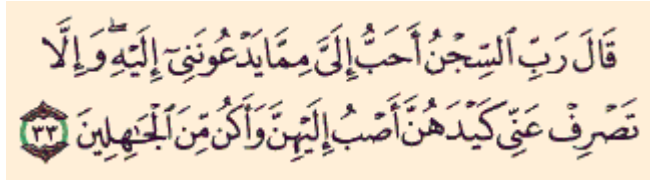 قَالَ رَبِّ ٱلسِّجْنُ أَحَبُّ إِلَىَّ مِمَّا يَدْعُونَنِىٓ إِلَيْهِ ۖ وَإِلَّا
تَصْرِفْ عَنِّى كَيْدَهُنَّ أَصْبُ إِلَيْهِنَّ وَأَكُن مِّنَ ٱلْجَـٰهِلِينَ ٣٣